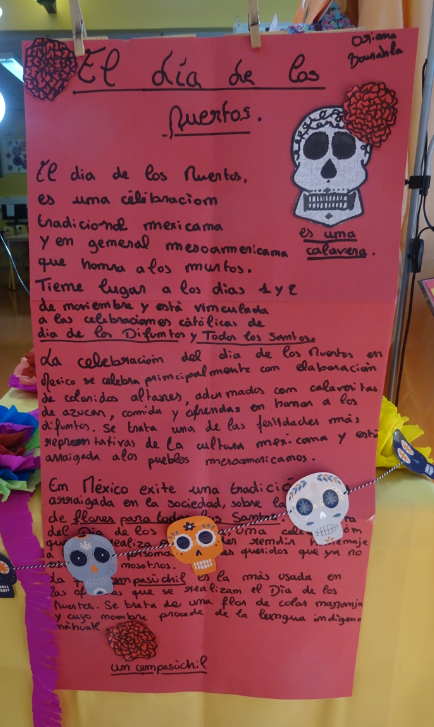 El día de los
Muertos.
es una
calavera.
El dia de los Muertos,
es una célibraciom
tradicional mexicama
y en general mesoarmericama
que homra a los murtos.
Tieme lugar a los dias 1 y 2
de moviembre y está vimculada
a las celebraciomes católicas de
dia de los Difumtos y Todos los Samtos.
La celebraciom del dia de los Muertos en
Mexico se celebra principalmente con elaboración
de coloridos altares, adormados com calaveritas
de azucar, comida y ofrendas en homor a los
difuntos. Se trata una de las festidades más
representativas de la cultura mexicama y está
arraigada alos pueblos mesoamericamos.
En México exite una tradició
arraigada en la sociedad, sobre la
de flores para
del Dia de los
queridos que ya no
mosotros.
empasúchil es la más usada en
las que se realizam el Dia de los
Muertos. Se trata de una flor de color
y cuyo mombre procede de la lemgua indigena
un cempasúchil